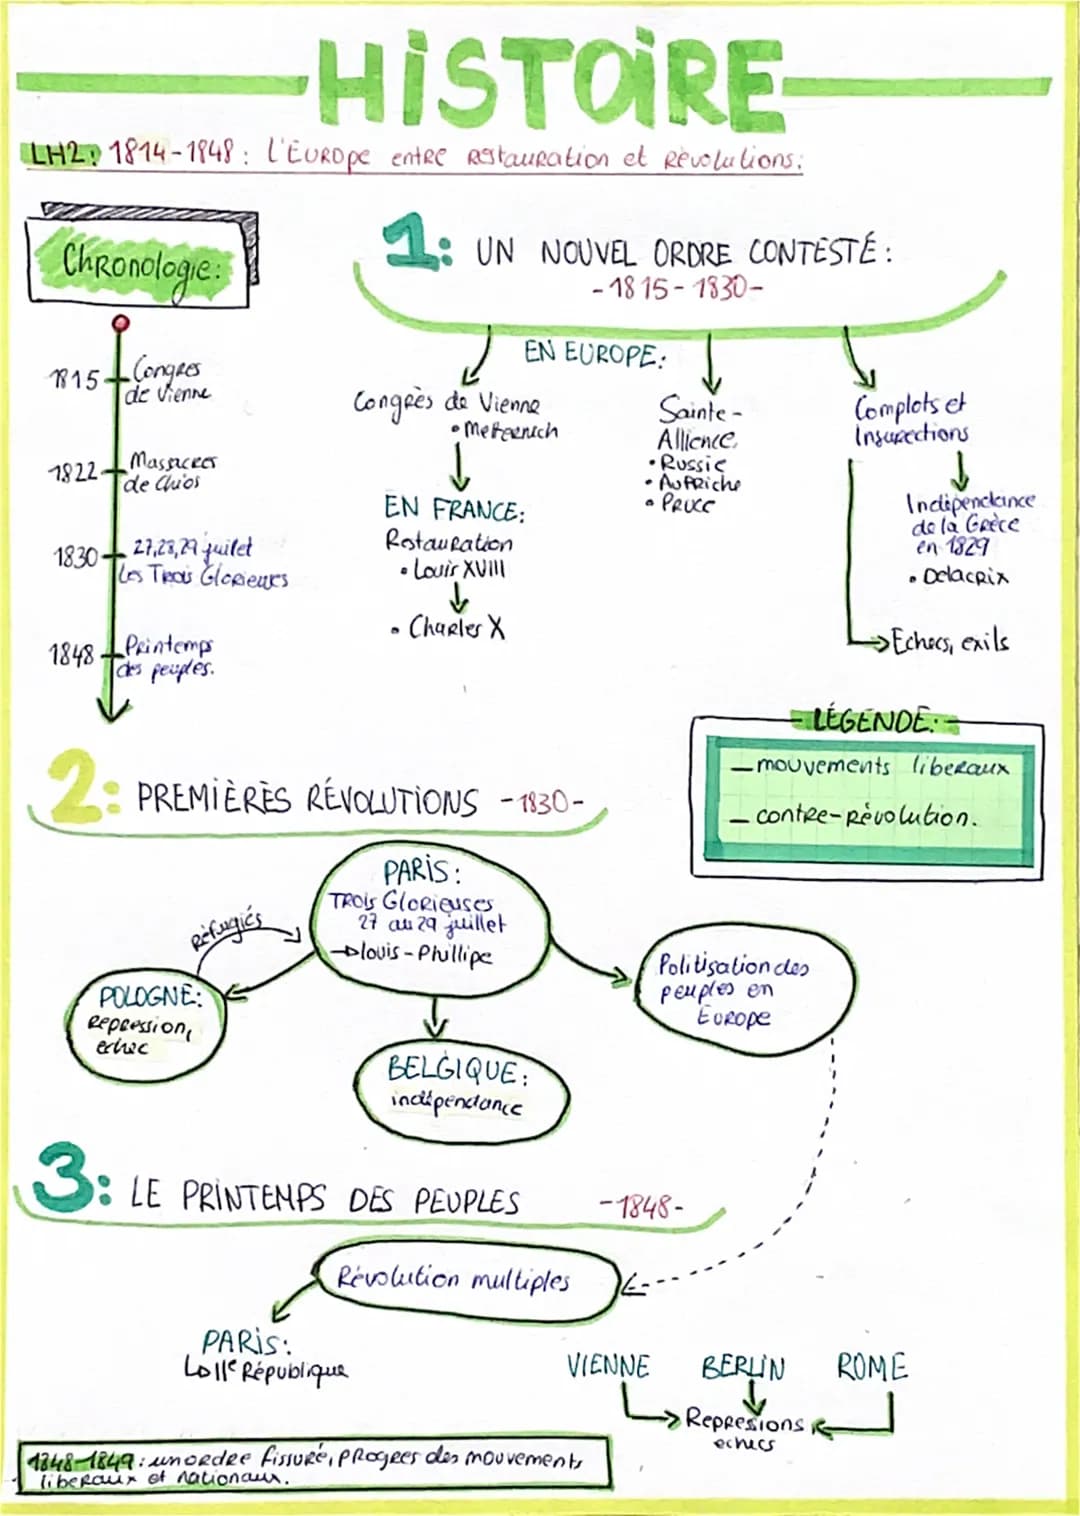 HISTOIRE
LH2: 1814-1848: L'EUROPE entre Restauration et Révolutions:
Chronologie:
1815 Congres
de Vienne
1822 Massacres
de Chios
1830 27,28,29 juilet
Les Trois Glorieuses
1848 Printemps
des peuples.
1: UN NOUVEL ORDRE CONTESTÉ:
-1815-1830-
EN EUROPE:
Congrès de Vienne
• Metternich
EN FRANCE:
Restauration
• Louis XVIII
• Charles X
Sainte-
Allience
• Russie
• Autriche
• Prucc
Complots et
Insurections
Indépendance
de la Grèce
en 1829
• Delacrix
Echecs, exils
LÉGENDE:
_ mouvements liberaux
_ contre-révolution.
2: PREMIÈRES RÉVOLUTIONS -1830-
PARIS:
TROIS Glorieuses
27 au 29 juillet
→ louis-Phillipe
Réfugiés
POLOGNE:
Repression,
echec
BELGIQUE:
indépendance
Politisation des
peuples en
EUROPE
3: LE PRINTEMPS DES PEUPLES -1848-
Révolution multiples
PARIS:
Lo IIe République
VIENNE BERLIN ROME
Represions
echecs
1848-1849: un ordre fissuré, progres des mouvements
liberaux et nationaux.